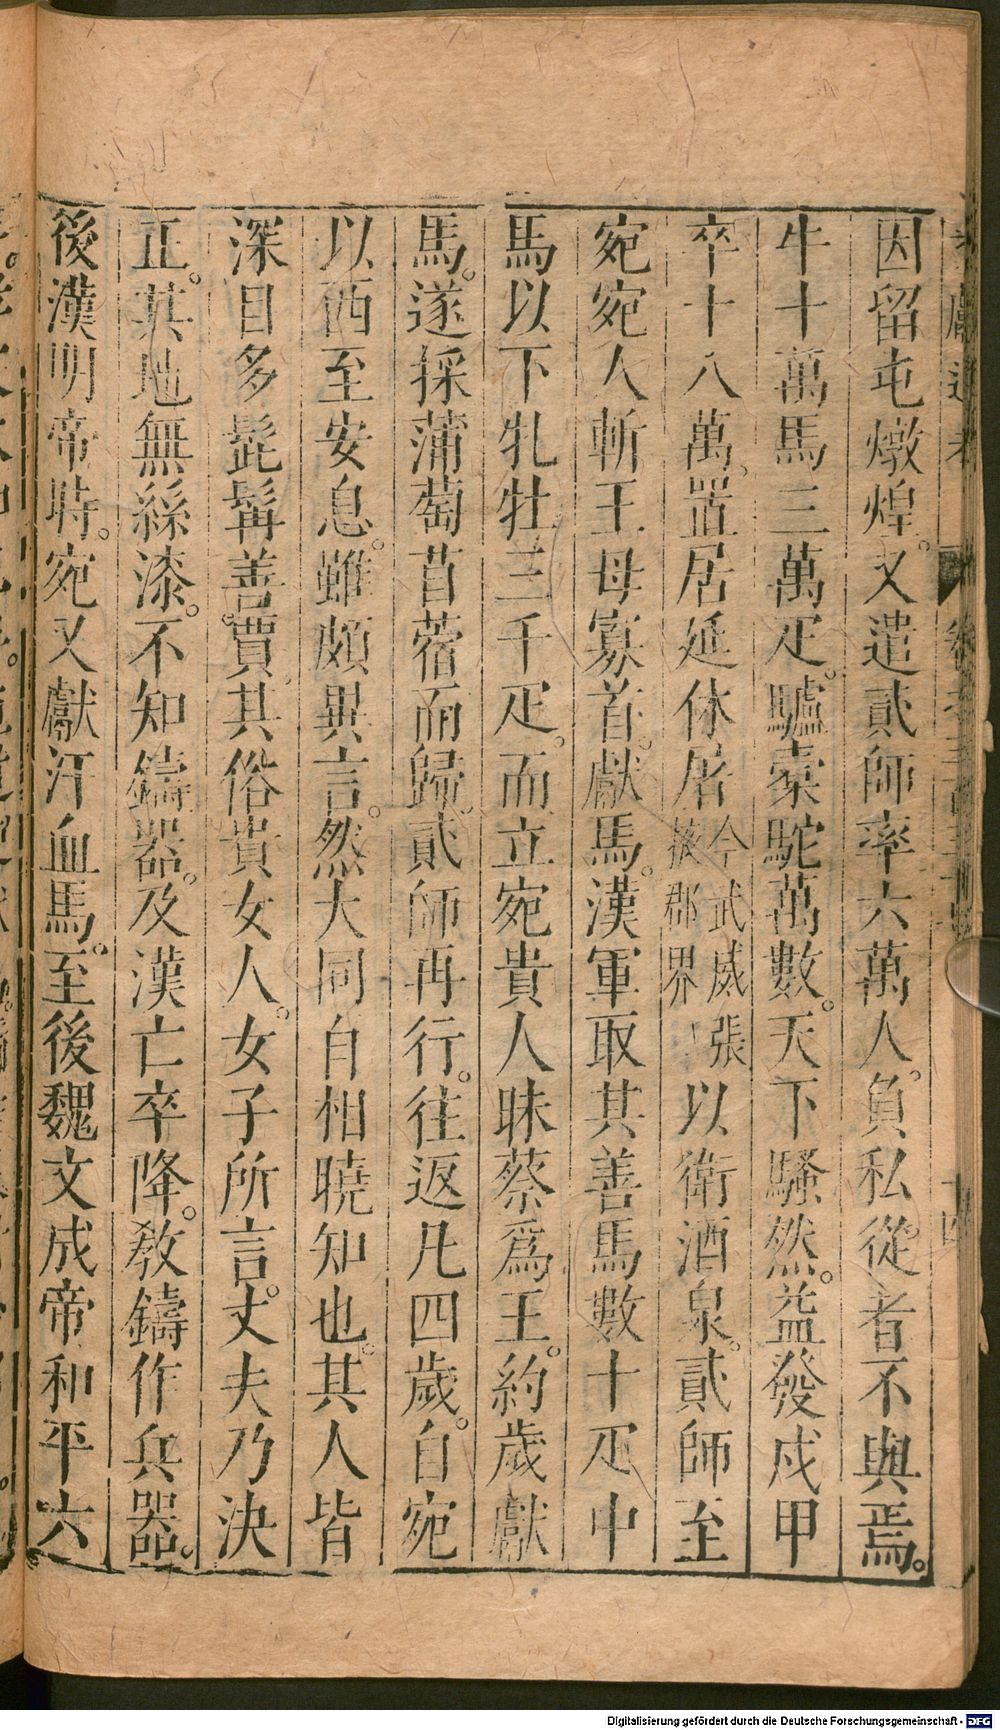 因留屯燉煌。又遣貳師率六萬人。負私從者不與焉。
牛十萬馬三萬疋。驢橐駝萬數。天下騷然。益發戍甲
卒十八萬。置居延休屠今武威張掖郡界以衛酒泉。貳師至
宛宛人斬王母寡首。獻馬。漢軍取其善馬數十疋中
馬以下牝牡三千疋。而立宛貴人昧蔡爲王。約歲獻
馬。遂採蒲萄苜蓿而歸。貳師再行。往返凡四歲。自宛
以西至安息。雖頗異言。然大同自相曉知也。其人皆
深目多髭髯善。賈其俗貴女人。女子所言。丈夫乃決
正。其地無絲漆。不知鑄器。及漢亡卒降。敎鑄作兵器。
後漢明帝時。宛又獻汗血馬。至後魏文成帝和平六
Digitalisierung gefördert durch die Deutsche Forschungsgemeinschaft - DFG